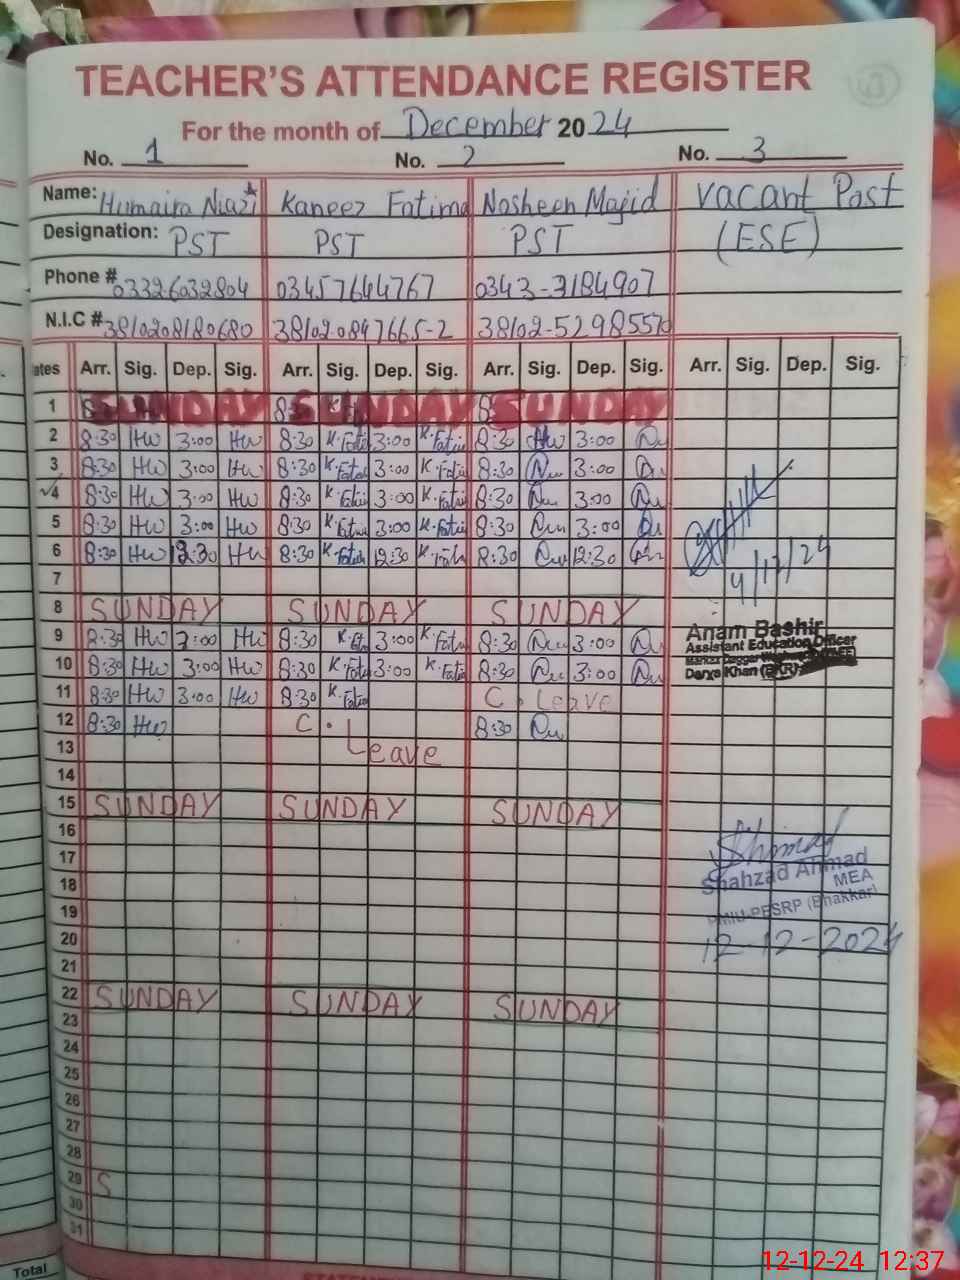 TEACHER'S ATTENDANCE REGISTER
For the month of December 2024
No. 1 No. 2 No. 3
Name: Humaira Niazi Kaneez Fatima Nosheen Majid Vacant Post
Designation: PST PST PST (ESE)
Phone # 03326032804 03457644767 0343-3184907
N.I.C # 3810208180680 38102-0847665-2 38102-5298557
ates Arr. Sig. Dep. Sig. Arr. Sig. Dep. Sig. Arr. Sig. Dep. Sig. Arr. Sig. Dep. Sig.
1 SUNDAY SUNDAY SUNDAY
2 8:30 HW 3:00 HW 8:30 K.Fatim 3:00 K.Fatim 8:30 3:00
3 8:30 HW 3:00 HW 8:30 K.Fatim 3:00 K.Fatim 8:30 3:00
4 8:30 HW 3:00 HW 8:30 K.Fatim 3:00 K.Fatim 8:30 3:00
5 8:30 HW 3:00 HW 8:30 K.Fatim 3:00 K.Fatim 8:30 3:00
6 8:30 HW 12:30 HW 8:30 K.Fatim 12:30 K.Fatim 8:30 12:30
4/12/24
7
8 SUNDAY SUNDAY SUNDAY
9 8:30 HW 3:00 HW 8:30 3:00 K.Fatim 8:30 3:00
Anam Bashir
Assistant Education Officer
10 8:30 HW 3:00 HW 8:30 K.Fatim 3:00 K.Fatim 8:30 3:00
Darya Khan
11 8:30 HW 3:00 HW 8:30 K.Fatim C. Leave
12 8:30 HW C. 8:30
13 Leave
14
15 SUNDAY SUNDAY SUNDAY
16
17
Shahzad Ahmad
18
MEA
19
PMIU-PESRP (Bhakkar)
20
12-12-2024
21
22 SUNDAY SUNDAY SUNDAY
23
24
25
26
27
28
29 S
30
31
Total
12-12-24 12:37